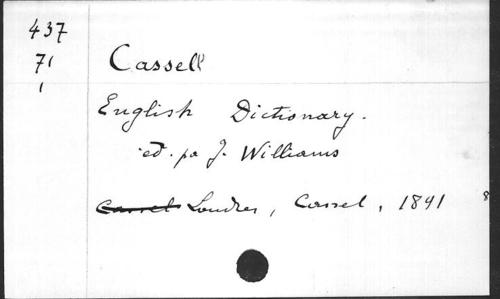 437
71
1
Cassell
English Dictionary.
ed. pa J. Williams
Cassel Londres, Cassel, 1891
8